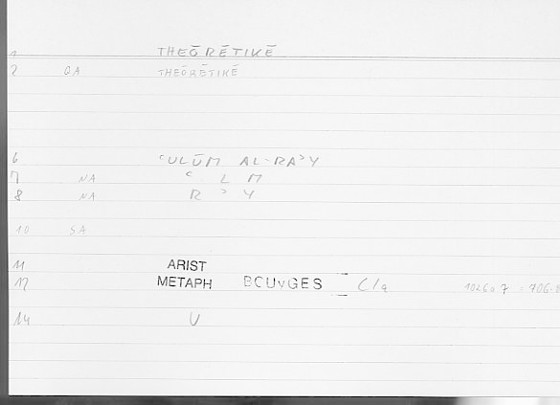 1 THEŌRĒTIKĒ
2 QA THEŌRĒTIKĒ
6 ʿULŪM AL-RAʾY
7 NA ʿ L M
8 NA R ʾ Y
10 SA
11 ARIST
12 METAPH BOUYGES C/a 1026a7
14 V